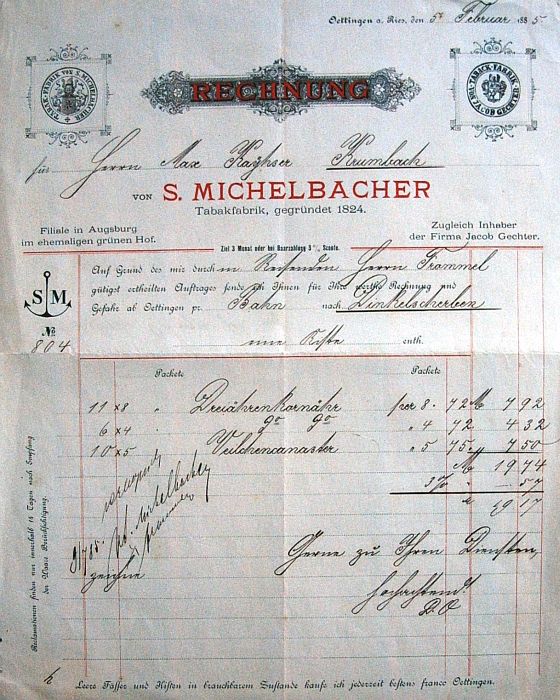 Oettingen a. Ries, den 5t Februar 1885
TABACK-FABRIK VON S. MICHELBACHER
RECHNUNG
TABACK-FABRIK VON JACOB GECHTER
für Herrn Max Kayhser Krumbach
VON S. MICHELBACHER
Tabakfabrik, gegründet 1824.
Filiale in Augsburg
im ehemaligen grünen Hof.
Zugleich Inhaber
der Firma Jacob Gechter.
Ziel 3 Monat oder bei Baarzahlung 3% Sconto.
S M
№
804
Auf Grund des mir durch m Reisenden Herrn Frommel
gütigst ertheilten Auftrages sende zu Ihnen für Ihre werthe Rechnung und
Gefahr ab Oettingen pr. Bahn nach Dinkelscherben
eine Kiste enth.
Packete Packete
11 x 8 " Dreiährenkornähr per 8. 72 M 7 92
6 x 4 " go go " 4 72 4 32
10 x 5 " Veilchencanaster " 5 75 " 7 50
M 19 74
3% " - 57
" 19 17
Gerne zu Ihren Diensten,
zeichne hochachtend!
D. O
Reclamationen finden nur innerhalb 14 Tagen nach Empfang
der Waare Berücksichtigung.
Leere Fässer und Kisten in brauchbarem Zustande kaufe ich jederzeit bestens franco Oettingen.